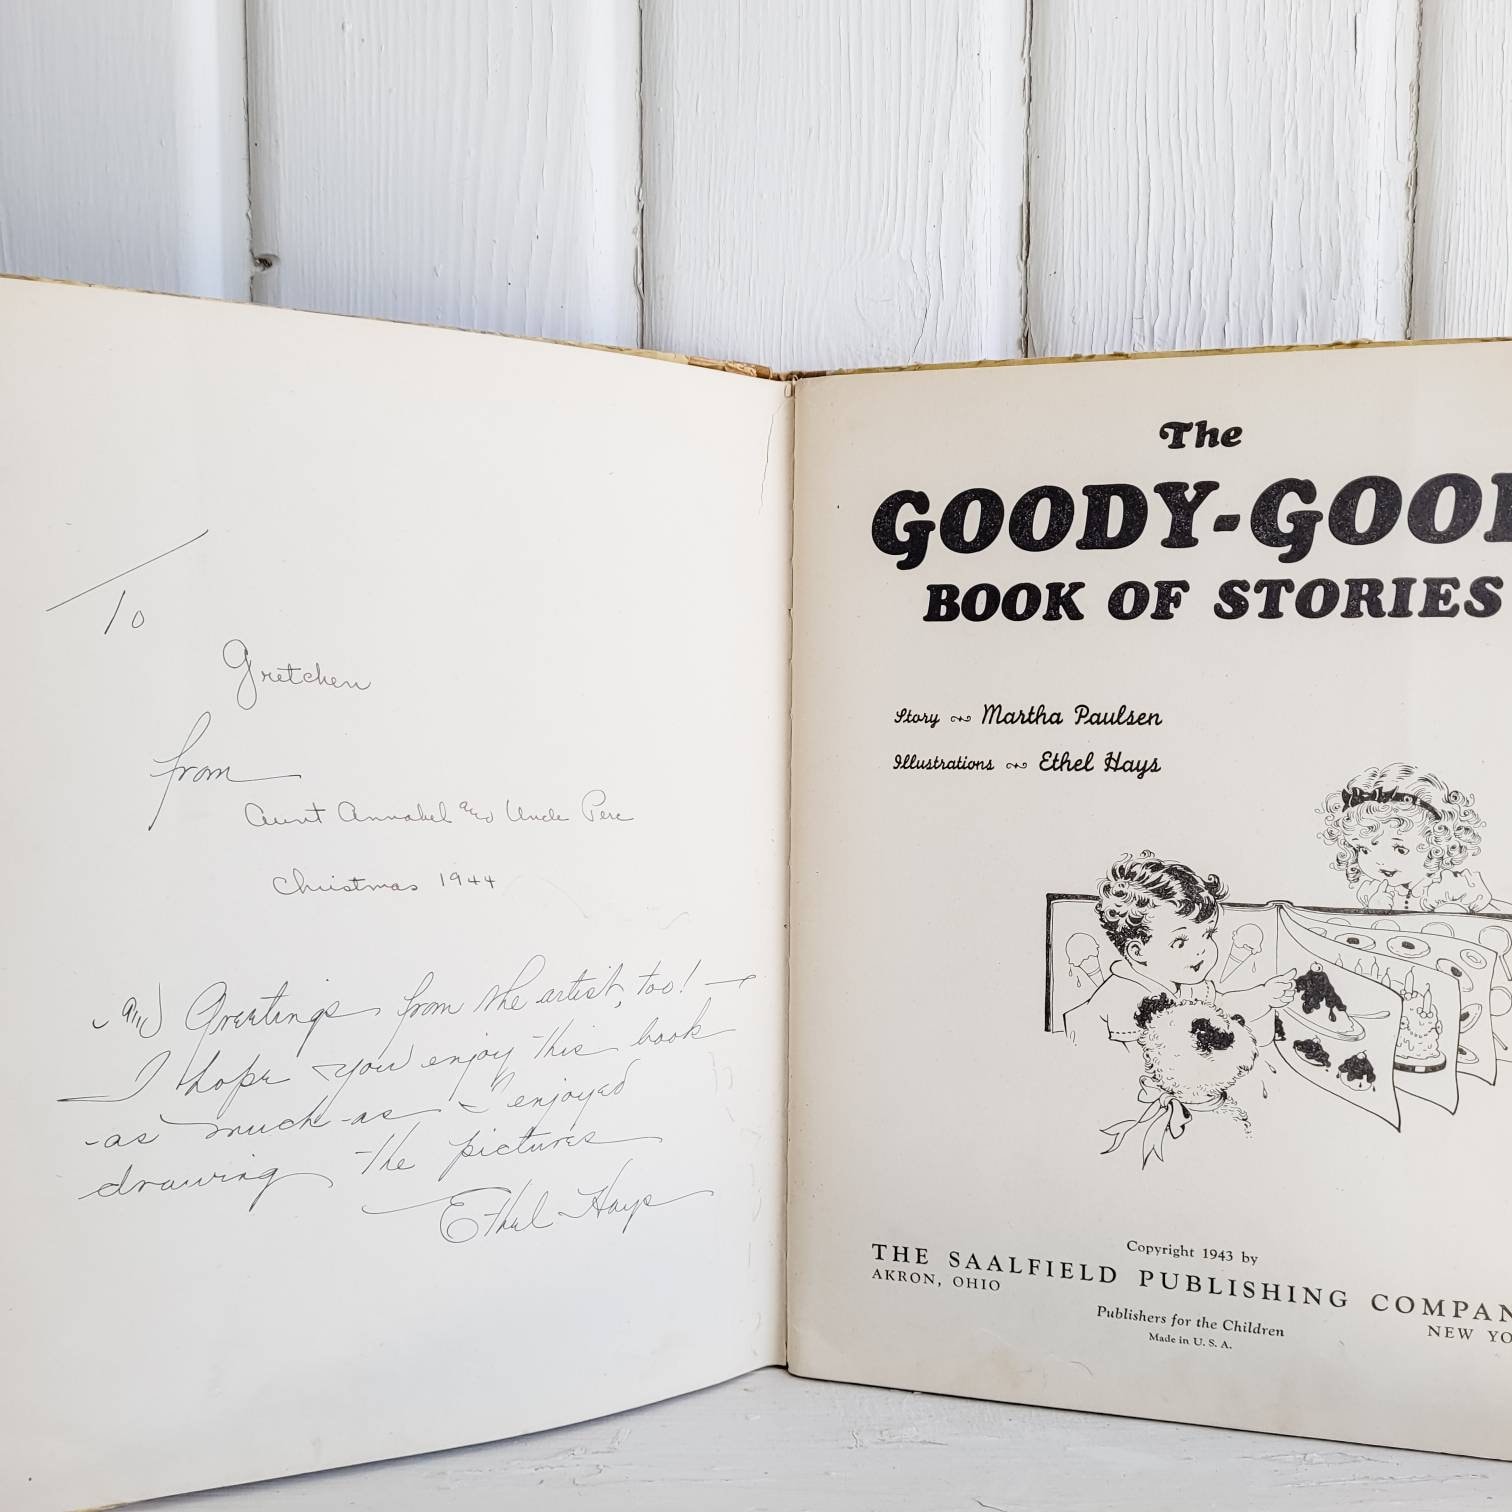 To
Gretchen
from
Aunt Annabel and Uncle Perc
Christmas 1944
and Greetings from the artist, too! —
I hope you enjoy this book
as much as I enjoyed
drawing the pictures
Ethel Hays
The
GOODY-GOOD
BOOK OF STORIES
Story Martha Paulsen
Illustrations Ethel Hays
Copyright 1943 by
THE SAALFIELD PUBLISHING COMPAN
AKRON, OHIO NEW YO
Publishers for the Children
Made in U. S. A.